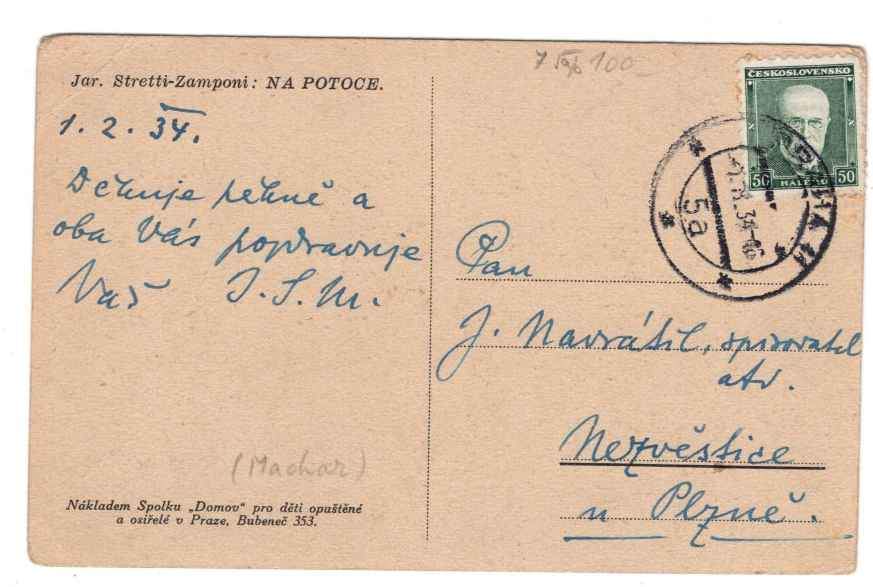 Jar. Stretti-Zamponi: NA POTOCE.
1. 2. 34.
Děkuje pěkně a
oba Vás pozdravuje
Váš J. S. M.
(Machar)
Nákladem Spolku „Domov“ pro děti opuštěné
a osiřelé v Praze, Bubeneč 353.
100
ČESKOSLOVENSKO
50 50
HALÉŘŮ
PRAHA
34
5a
Pan
J. Navrátil, spisovatel
atd.
Nezvěstice
u Plzně.